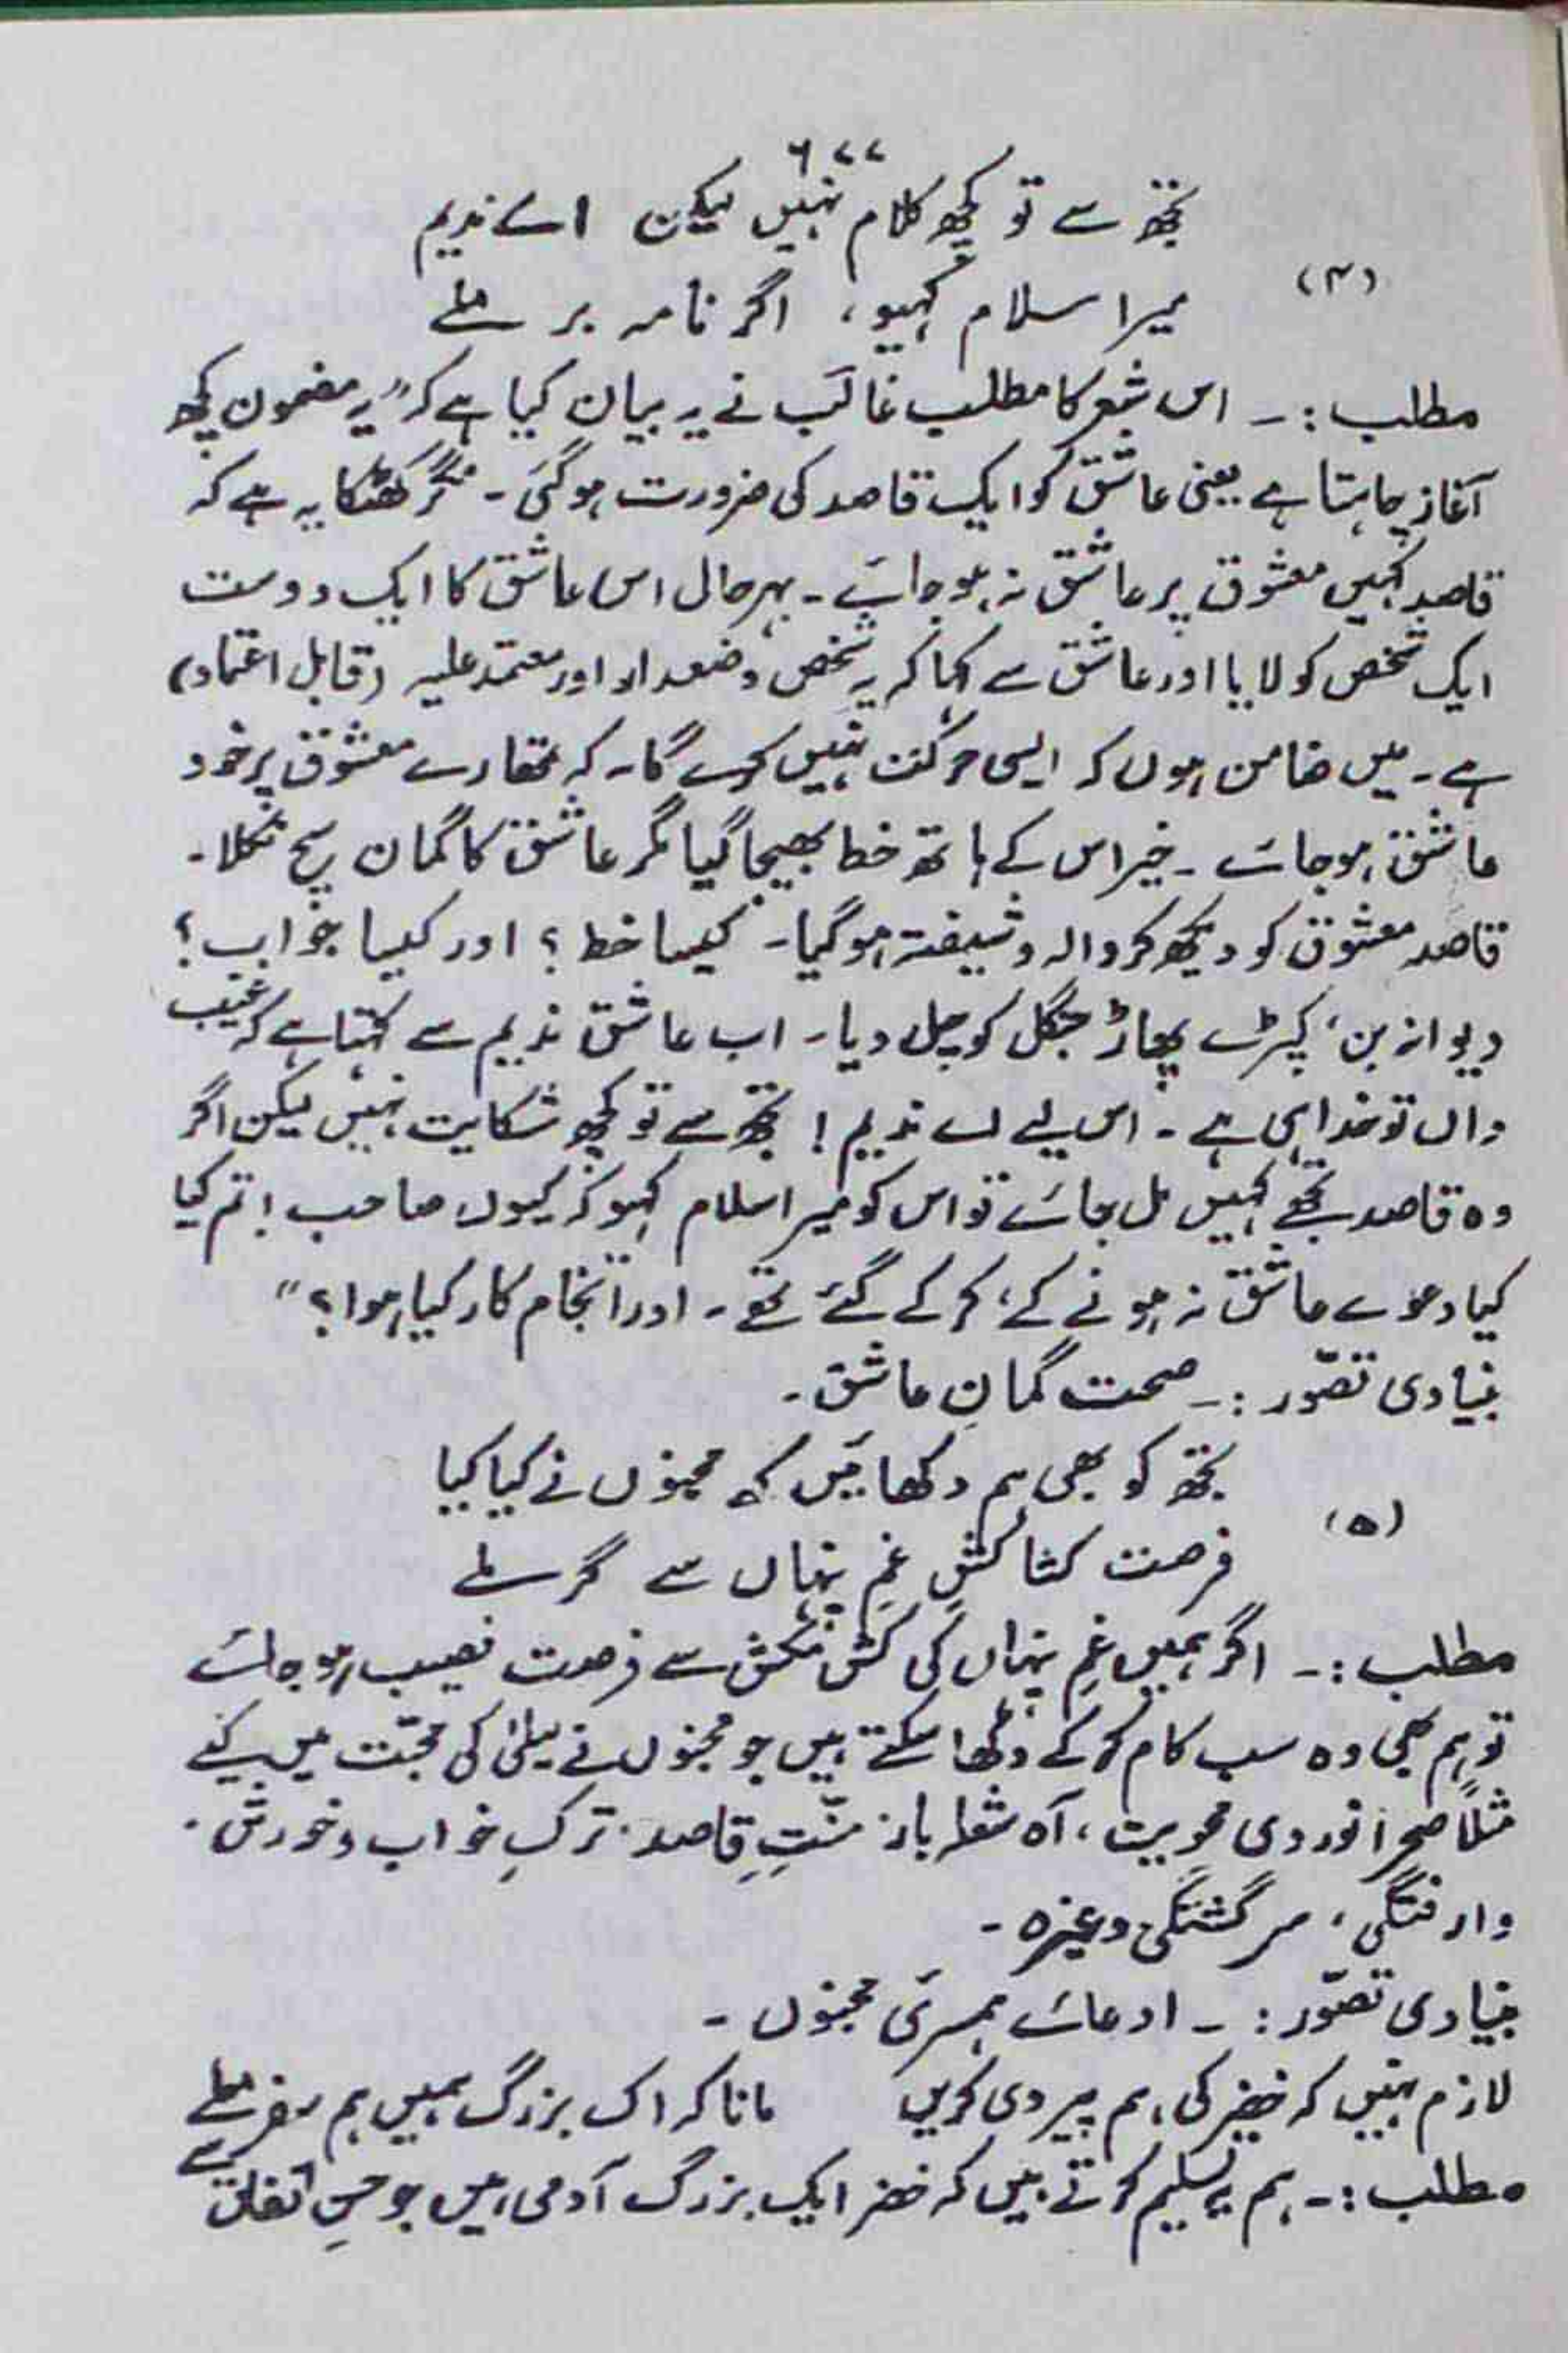 ۶۷۷
تجھ سے تو کچھ کلام نہیں لیکن اے ندیم
(۴)
میرا سلام کہیو، اگر نامہ بر ملے
مطلب :۔ اس شعر کا مطلب غالبؔ نے یہ بیان کیا ہے کہ "یہ مضمون کچھ
آغاز چاہتا ہے یعنی عاشق کو ایک قاصد کی ضرورت ہوگئی۔ مگر کھٹکا یہ ہے کہ
قاصد کہیں معشوق پر عاشق نہ ہو جائے۔ بہرحال اس عاشق کا ایک دوست
ایک شخص کو لایا اور عاشق سے کہا کہ یہ شخص وضعدار اور معتمد علیہ (قابل اعتماد)
ہے۔ میں ضامن ہوں کہ ایسی حرکت نہیں کرے گا۔ کہ تمھارے معشوق پر خود
عاشق ہو جائے۔ خیر اس کے ہاتھ خط بھیجا گیا مگر عاشق کا گمان سچ نکلا۔
قاصد معشوق کو دیکھ کر والہ و شیفتہ ہوگیا۔ کیسا خط؟ اور کیسا جواب؟
دیوانہ بن، کپڑے پھاڑ جنگل کو چل دیا۔ اب عاشق ندیم سے کہتا ہے کہ غیب
داں تو خدا ہی ہے۔ اس لیے اے ندیم! تجھ سے تو کچھ شکایت نہیں لیکن اگر
وہ قاصد تجھے کہیں مل جائے تو اس کو میرا سلام کہو کہ کیوں صاحب! تم کیا
کیا دعوے عاشق نہ ہونے کے، کر کے گئے تھے۔ اور انجام کار کیا ہوا؟"
بنیادی تصوّر :۔ صحت گمانِ عاشق۔
تجھ کو بھی ہم دکھائیں کہ مجنوں نے کیا کیا
(۵)
فرصت کشاکشِ غمِ پنہاں سے گر ملے
مطلب :۔ اگر ہمیں غمِ پنہاں کی کش مکش سے فرصت نصیب ہو جائے
تو ہم بھی وہ سب کام کر کے دکھا سکتے ہیں جو مجنوں نے لیلیٰ کی محبّت میں کیے
مثلاً صحرا نوردی محویت، آہ شعلہ بار۔ منّتِ قاصد۔ ترکِ خواب و خورش۔
وارفتگی، سرگشتگی وغیرہ۔
بنیادی تصوّر :۔ ادعائے ہمسریٔ مجنوں۔
لازم نہیں کہ خضر کی ہم پیروی کریں مانا کہ اک بزرگ ہمیں ہم سفر ملے
مطلب :۔ ہم یہ تسلیم کرتے ہیں کہ خضر ایک بزرگ آدمی ہیں جو حسنِ اتفاق سے